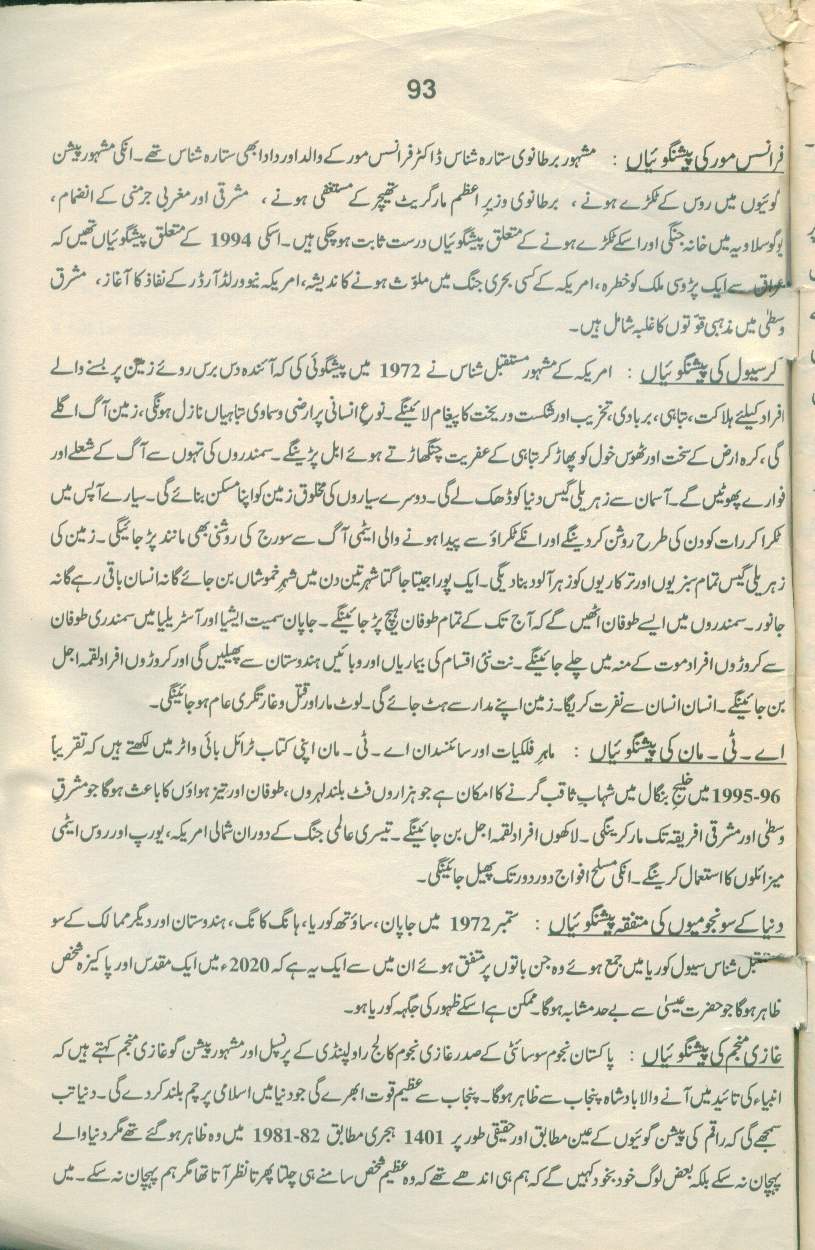 93
فرانس مور کی پیشنگوئیاں : مشہور برطانوی ستارہ شناس ڈاکٹر فرانس مور کے والد اور دادا بھی ستارہ شناس تھے۔ انکی مشہور پیشن
گوئیوں میں روس کے ٹکڑے ہونے ، برطانوی وزیرِ اعظم مارگریٹ تھیچر کے مستعفی ہونے ، مشرقی اور مغربی جرمنی کے انضمام ،
یوگوسلاویہ میں خانہ جنگی اور اسکے ٹکڑے ہونے کے متعلق پیشنگوئیاں درست ثابت ہو چکی ہیں۔ اسکی 1994 کے متعلق پیشنگوئیاں تھیں کہ
عراق سے ایک پڑوسی ملک کو خطرہ ، امریکہ کے کسی بحری جنگ میں ملوّث ہونے کا اندیشہ، امریکہ نیو ورلڈ آرڈر کے نفاذ کا آغاز ، مشرق
وسطٰی میں مذہبی قوّتوں کا غلبہ شامل ہیں۔
کرسیول کی پیشنگوئیاں : امریکہ کے مشہور مستقبل شناس نے 1972 میں پیشگوئی کی کہ آئندہ دس برس روئے زمین پر بسنے والے
افراد کیلئے ہلاکت ، تباہی ، بربادی ، تخریب اور شکست و ریخت کا پیغام لائینگے۔ نوعِ انسانی پر ارضی و سماوی تباہیاں نازل ہونگی ، زمین آگ اگلے
گی ، کرہ ارض کے سخت اور ٹھوس خول کو پھاڑ کر تباہی کے عفریت چنگھاڑتے ہوئے ابل پڑینگے۔ سمندروں کی تہوں سے آگ کے شعلے اور
فوارے پھوٹیں گے۔ آسمان سے زہریلی گیس دنیا کو ڈھک لے گی۔ دوسرے سیاروں کی مخلوق زمین کو اپنا مسکن بنائے گی۔ سیارے آپس میں
ٹکرا کر رات کو دن کی طرح روشن کر دینگے اور انکے ٹکراؤ سے پیدا ہونے والی ایٹمی آگ سے سورج کی روشنی بھی ماند پڑ جائیگی ۔ زمین کی
زہریلی گیس تمام سبزیوں اور ترکاریوں کو زہر آلود بنا دیگی۔ ایک پورا جیتا جاگتا شہر تین دن میں شہرِ خموشاں بن جائے گا نہ انسان باقی رہے گا نہ
جانور۔ سمندروں میں ایسے طوفان اٹھیں گے کہ آج تک کے تمام طوفان ہیچ پڑ جائینگے۔ جاپان سمیت ایشیا اور آسٹریلیا میں سمندری طوفان
سے کروڑوں افراد موت کے منہ میں چلے جائینگے۔ نت نئی اقسام کی بیماریاں اور وبائیں ہندوستان سے پھیلیں گی اور کروڑوں افراد لقمہ اجل
بن جائینگے۔ انسان انسان سے نفرت کریگا۔ زمین اپنے مدار سے ہٹ جائے گی۔ لوٹ مار اور قتل و غارتگری عام ہو جائینگی۔
اے ۔ ٹی ۔ مان کی پیشنگوئیاں : ماہرِ فلکیات اور سائنسدان اے ۔ ٹی ۔ مان اپنی کتاب ٹرائل بائی واٹر میں لکھتے ہیں کہ تقریباً
1995-96 میں خلیجِ بنگال میں شہاب ثاقب گرنے کا امکان ہے جو ہزاروں فٹ بلند لہروں ، طوفان اور تیز ہواؤں کا باعث ہوگا جو مشرقِ
وسطٰی اور مشرقی افریقہ تک مار کرینگی ۔ لاکھوں افراد لقمہ اجل بن جائینگے۔ تیسری عالمی جنگ کے دوران شمالی امریکہ ، یورپ اور روس ایٹمی
میزائلوں کا استعمال کرینگے۔ انکی مسلح افواج دور دور تک پھیل جائینگی۔
دنیا کے سو نجومیوں کی متفقہ پیشنگوئیاں : ستمبر 1972 میں جاپان ، ساؤتھ کوریا ، ہانگ کانگ ، ہندوستان اور دیگر ممالک کے سو
مستقبل شناس سیول کوریا میں جمع ہوئے وہ جن باتوں پر متفق ہوئے ان میں سے ایک یہ ہے کہ 2020ء میں ایک مقدس اور پاکیزہ شخص
ظاہر ہوگا جو حضرت عیسیٰ سے بے حد مشابہ ہوگا۔ ممکن ہے اسکے ظہور کی جگہہ کوریا ہو۔
غازی منجم کی پیشنگوئیاں : پاکستان نجوم سوسائٹی کے صدر غازی نجوم کالج راولپنڈی کے پرنسپل اور مشہور پیشن گو غازی منجم کہتے ہیں کہ
انبیاء کی تائید میں آنے والا بادشاہ پنجاب سے ظاہر ہوگا۔ پنجاب سے عظیم قوت ابھرے گی جو دنیا میں اسلامی پرچم بلند کر دے گی ۔ دنیا تب
سمجھے گی کہ راقم کی پیشن گوئیوں کے عین مطابق اور حقیقی طور پر 1401 ہجری مطابق 1981-82 میں وہ ظاہر ہو گئے تھے مگر دنیا والے
پہچان نہ سکے بلکہ بعض لوگ خود بخود کہیں گے کہ ہم ہی اندھے تھے کہ وہ عظیم شخص سامنے ہی چلتا پھرتا نظر آتا تھا مگر ہم پہچان نہ سکے۔ میں